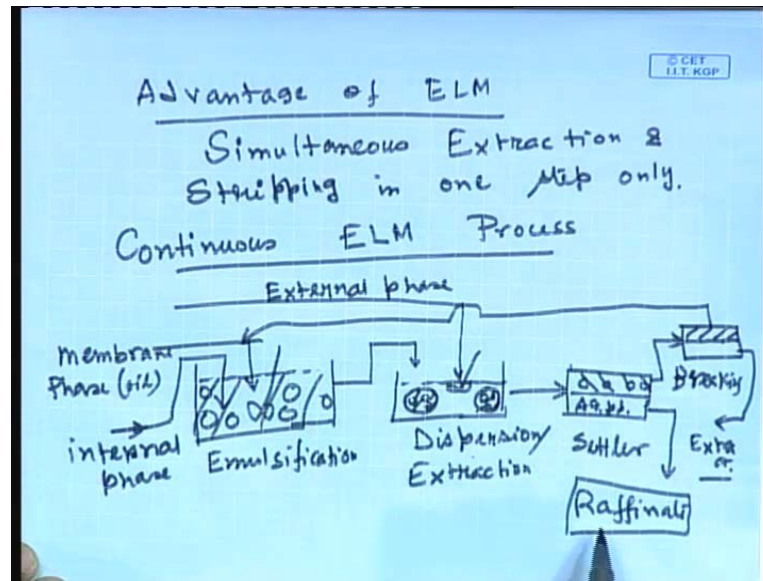 © CET
I.I.T. KGP
Advantage of ELM
Simultaneous Extraction &
Stripping in one step only.
Continuous ELM Process
External phase
membrane
Phase (oil)
internal
phase
Emulsification
Dispersion/
Extraction
Aq. ph.
Settler
Breaking
Extra
ct.
Raffinate